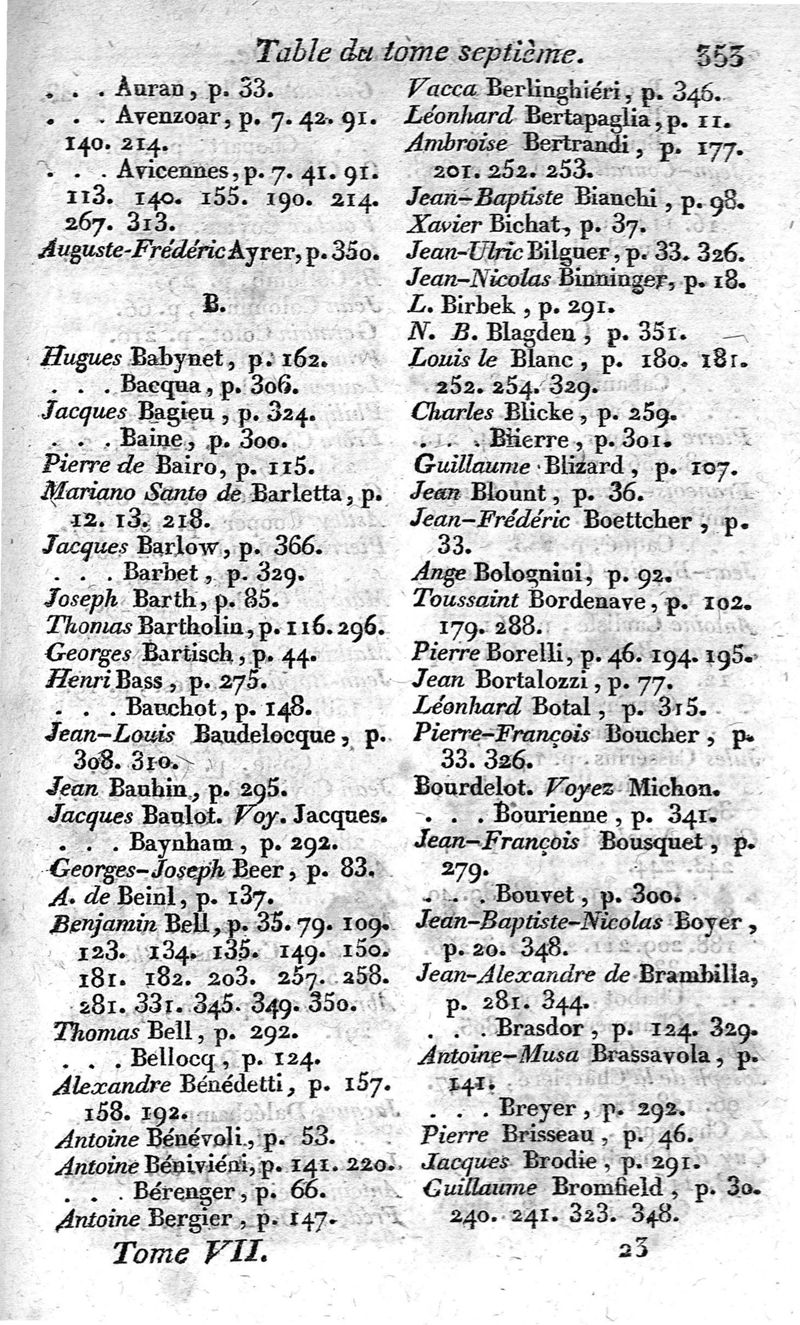 Table du tome septième. 353
. . . Auran, p. 33.
. . . Avenzoar, p. 7. 42. 91.
140. 214.
. . . Avicennes, p. 7. 41. 91.
113. 140. 155. 190. 214.
267. 313.
Auguste-Frédéric Ayrer, p. 350.
B.
Hugues Babynet, p. 162.
. . . Bacqua, p. 306.
Jacques Bagieu, p. 324.
. . . Baine, p. 300.
Pierre de Bairo, p. 115.
Mariano Santo de Barletta, p.
12. 13. 218.
Jacques Barlow, p. 366.
. . . Barbet, p. 329.
Joseph Barth, p. 85.
Thomas Bartholin, p. 116. 296.
Georges Bartisch, p. 44.
Henri Bass, p. 275.
. . . Bauchot, p. 148.
Jean-Louis Baudelocque, p.
308. 310.
Jean Bauhin, p. 295.
Jacques Baulot. Voy. Jacques.
. . . Baynham, p. 292.
Georges-Joseph Beer, p. 83.
A. de Beinl, p. 137.
Benjamin Bell, p. 35. 79. 109.
123. 134. 135. 149. 150.
181. 182. 203. 257. 258.
281. 331. 345. 349. 350.
Thomas Bell, p. 292.
. . . Bellocq, p. 124.
Alexandre Bénédetti, p. 157.
158. 192.
Antoine Bénévoli, p. 53.
Antoine Béniviéni, p. 141. 220.
. . . Bérenger, p. 66.
Antoine Bergier, p. 147.
Vacca Berlinghiéri, p. 346.
Léonhard Bertapaglia, p. 11.
Ambroise Bertrandi, p. 177.
201. 252. 253.
Jean-Baptiste Bianchi, p. 98.
Xavier Bichat, p. 37.
Jean-Ulric Bilguer, p. 33. 326.
Jean-Nicolas Binninger, p. 18.
L. Birbek, p. 291.
N. B. Blagden, p. 351.
Louis le Blanc, p. 180. 181.
252. 254. 329.
Charles Blicke, p. 259.
. . . Blierre, p. 301.
Guillaume Blizard, p. 107.
Jean Blount, p. 36.
Jean-Frédéric Boettcher, p.
33.
Ange Bolognini, p. 92.
Toussaint Bordenave, p. 102.
179. 288.
Pierre Borelli, p. 46. 194. 195.
Jean Bortalozzi, p. 77.
Léonhard Botal, p. 315.
Pierre-François Boucher, p.
33. 326.
Bourdelot. Voyez Michon.
. . . Bourienne, p. 341.
Jean-François Bousquet, p.
279.
. . . Bouvet, p. 300.
Jean-Baptiste-Nicolas Boyer,
p. 20. 348.
Jean-Alexandre de Brambilla,
p. 281. 344.
. . . Brasdor, p. 124. 329.
Antoine-Musa Brassavola, p.
141.
. . . Breyer, p. 292.
Pierre Brisseau, p. 46.
Jacques Brodie, p. 291.
Guillaume Bromfield, p. 30.
240. 241. 323. 348.
Tome VII. 23